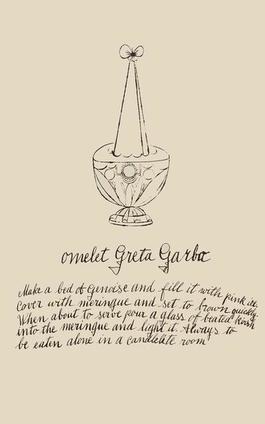 omelet Greta Garbo
Make a bed of genoise and fill it with pink ice.
Cover with meringue and set to brown quickly.
When about to serve pour a glass of heated kirsh
into the meringue and light it. Always to
be eaten alone in a candelete room